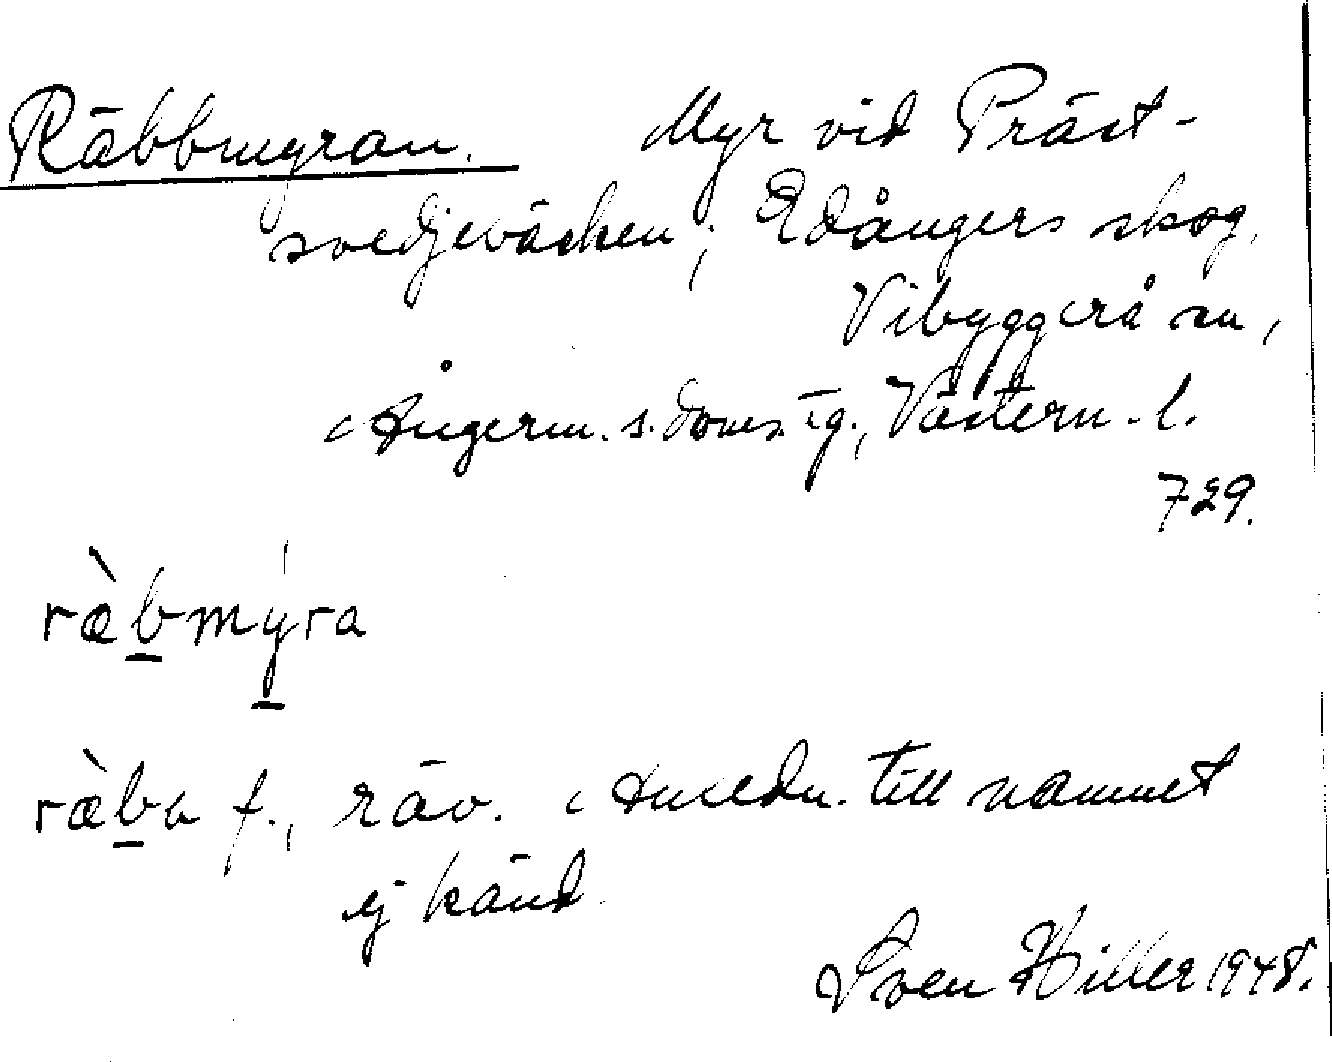 Räbbmyran. Myr vid Präst-
svedjevācken; Edångers skog,
Vibyggerå sn,
Ångerm. s. doms.-g., Västern. l.
729.
ràbmýra
ræ̀ba f., räv. Anledn. till namnet
ej känd.
Sven Hiller 1948.